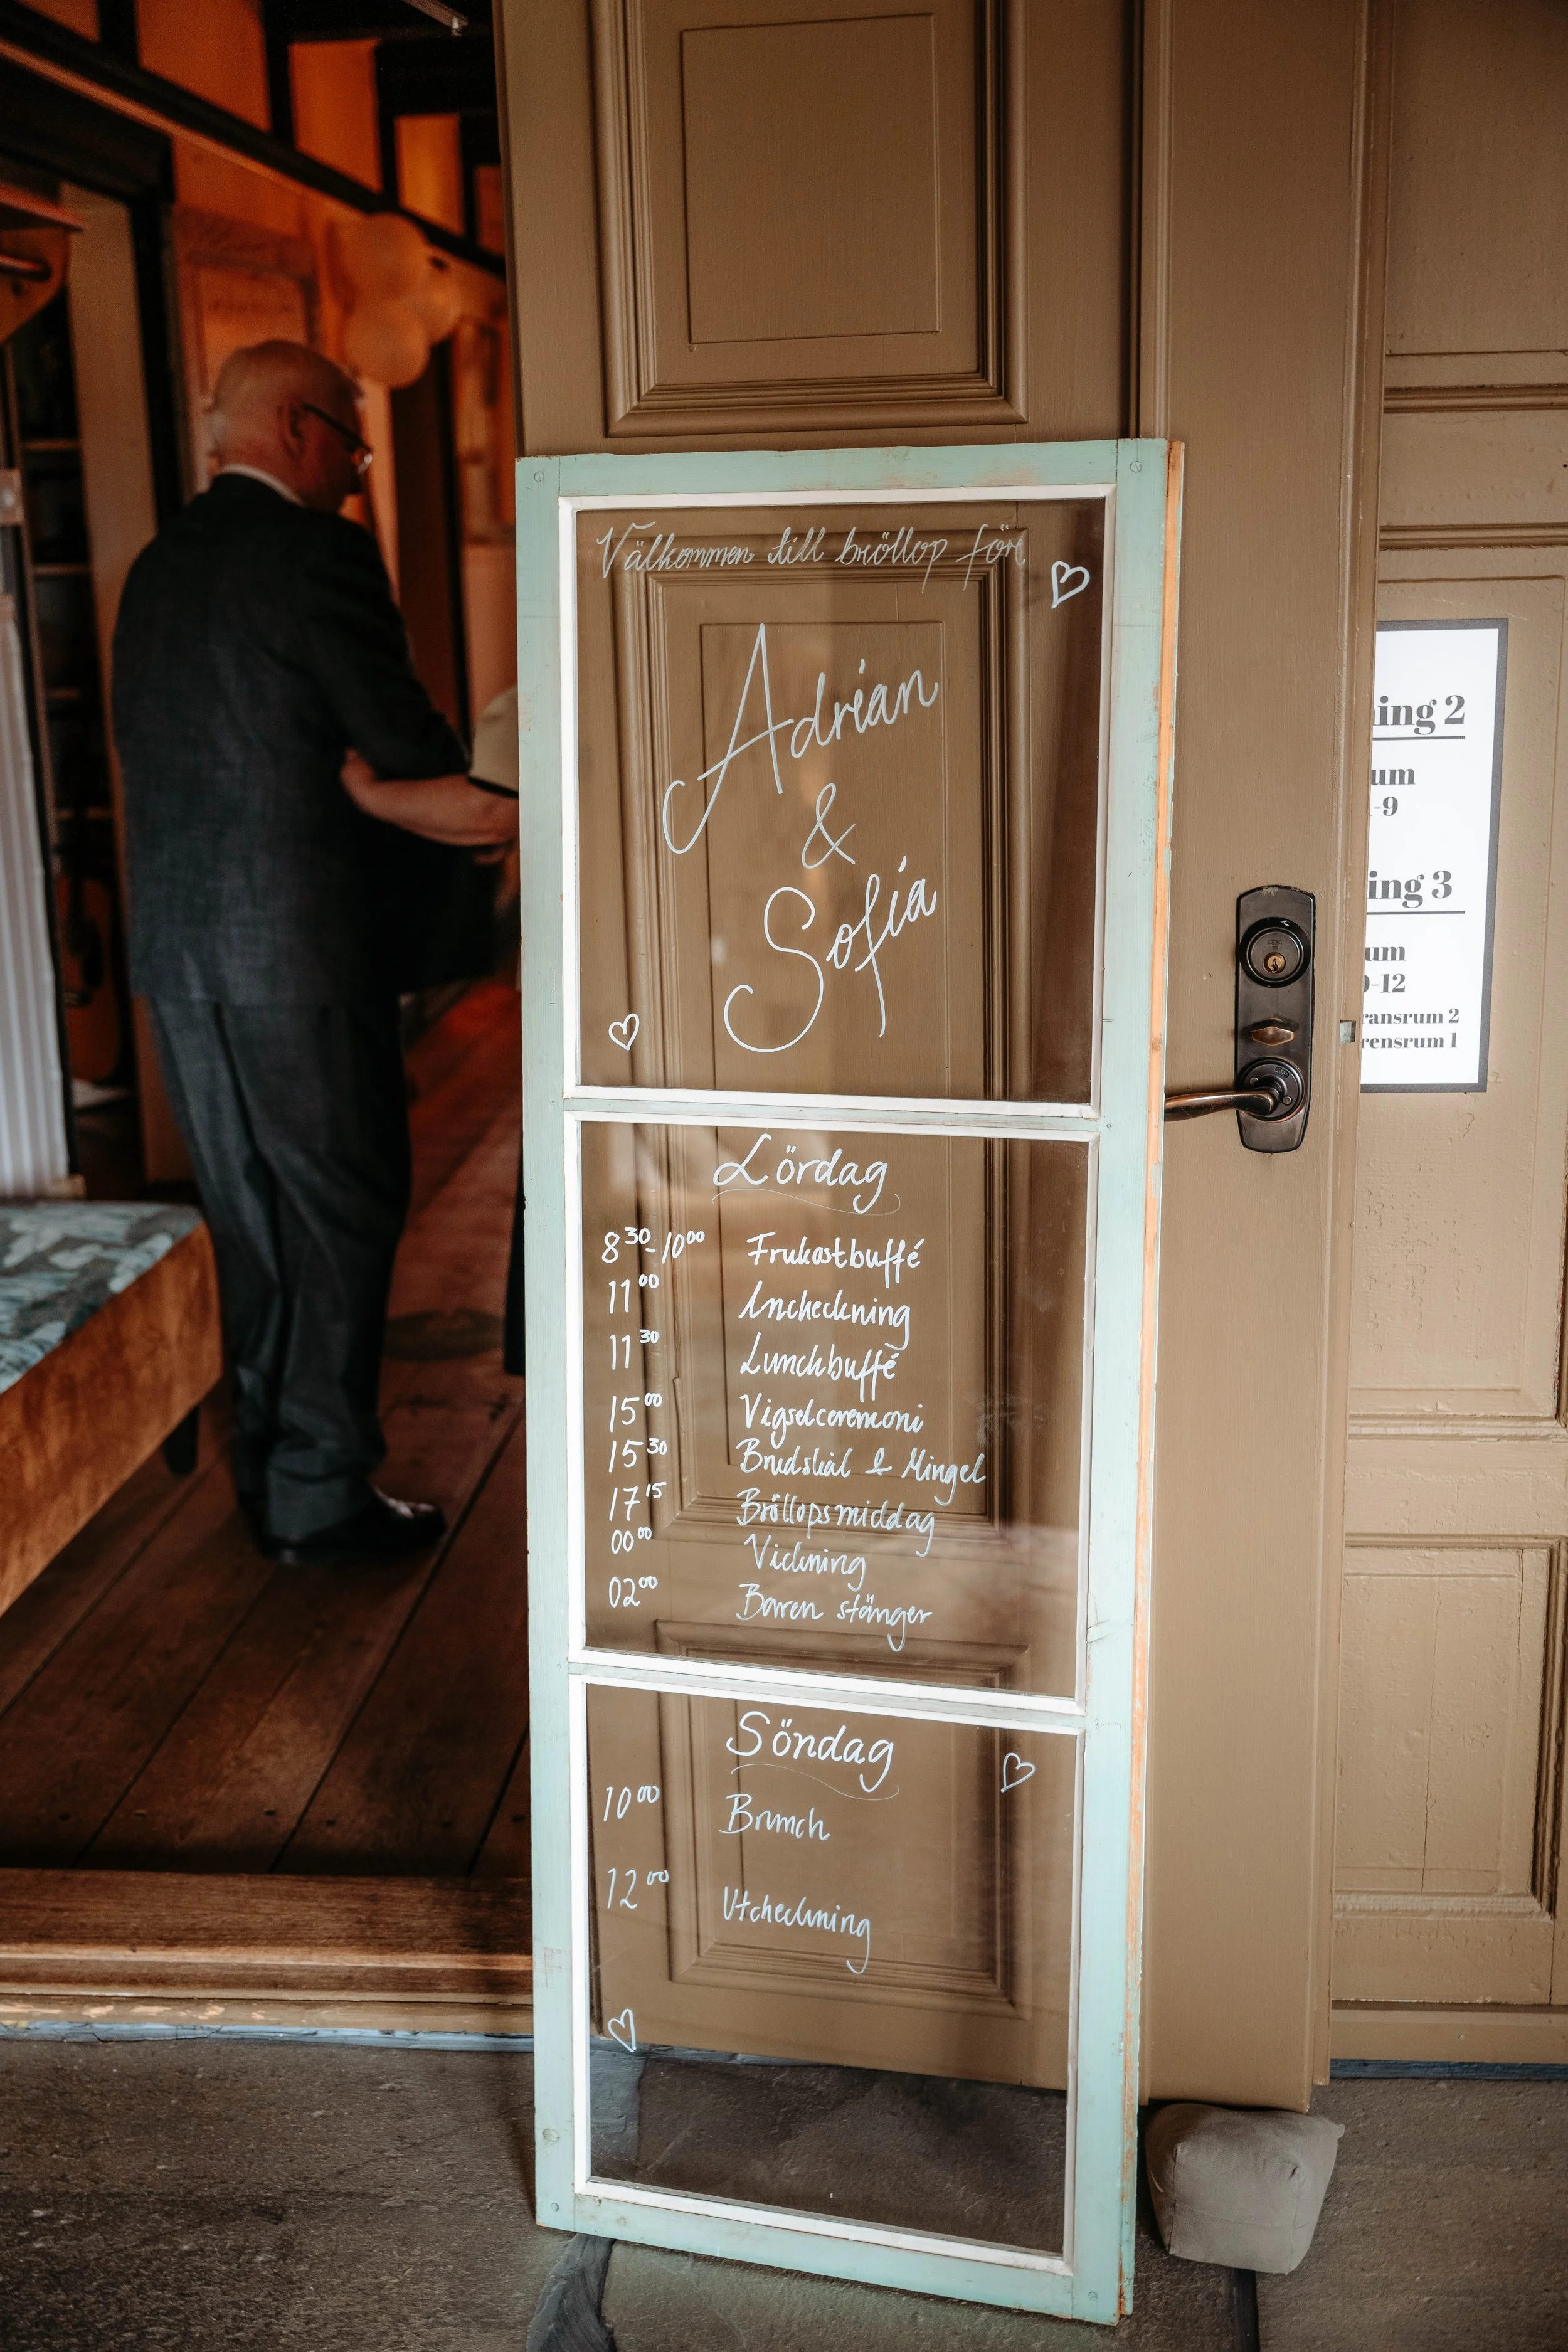 Välkommen till bröllop för
Adrian
&
Sofia
Lördag
8³⁰-10⁰⁰ Frukostbuffé
11⁰⁰ Incheckning
11³⁰ Lunchbuffé
15⁰⁰ Vigselceremoni
15³⁰ Brudskål & Mingel
17¹⁵ Bröllopsmiddag
00⁰⁰ Vickning
02⁰⁰ Baren stänger
Söndag
10⁰⁰ Brunch
12⁰⁰ Utcheckning
ing 2
um
-9
ing 3
um
-12
ransrum 2
rensrum 1